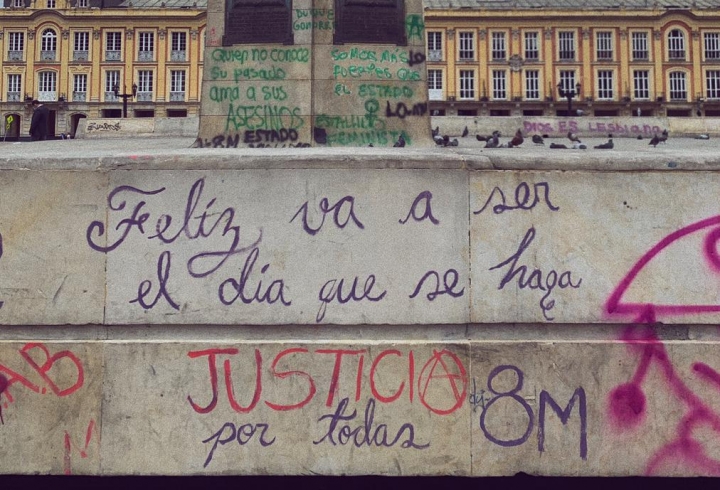 Quien no conoce
su pasado
ama a sus
ASESINOS
ESTADO
SOMOS MÁS
FUERTES QUE
EL ESTADO
ESTALLIDO
FEMINISTA
DIOS ES LESBIANA
Feliz va a ser
el día que se haga
JUSTICIA
por todas
8M